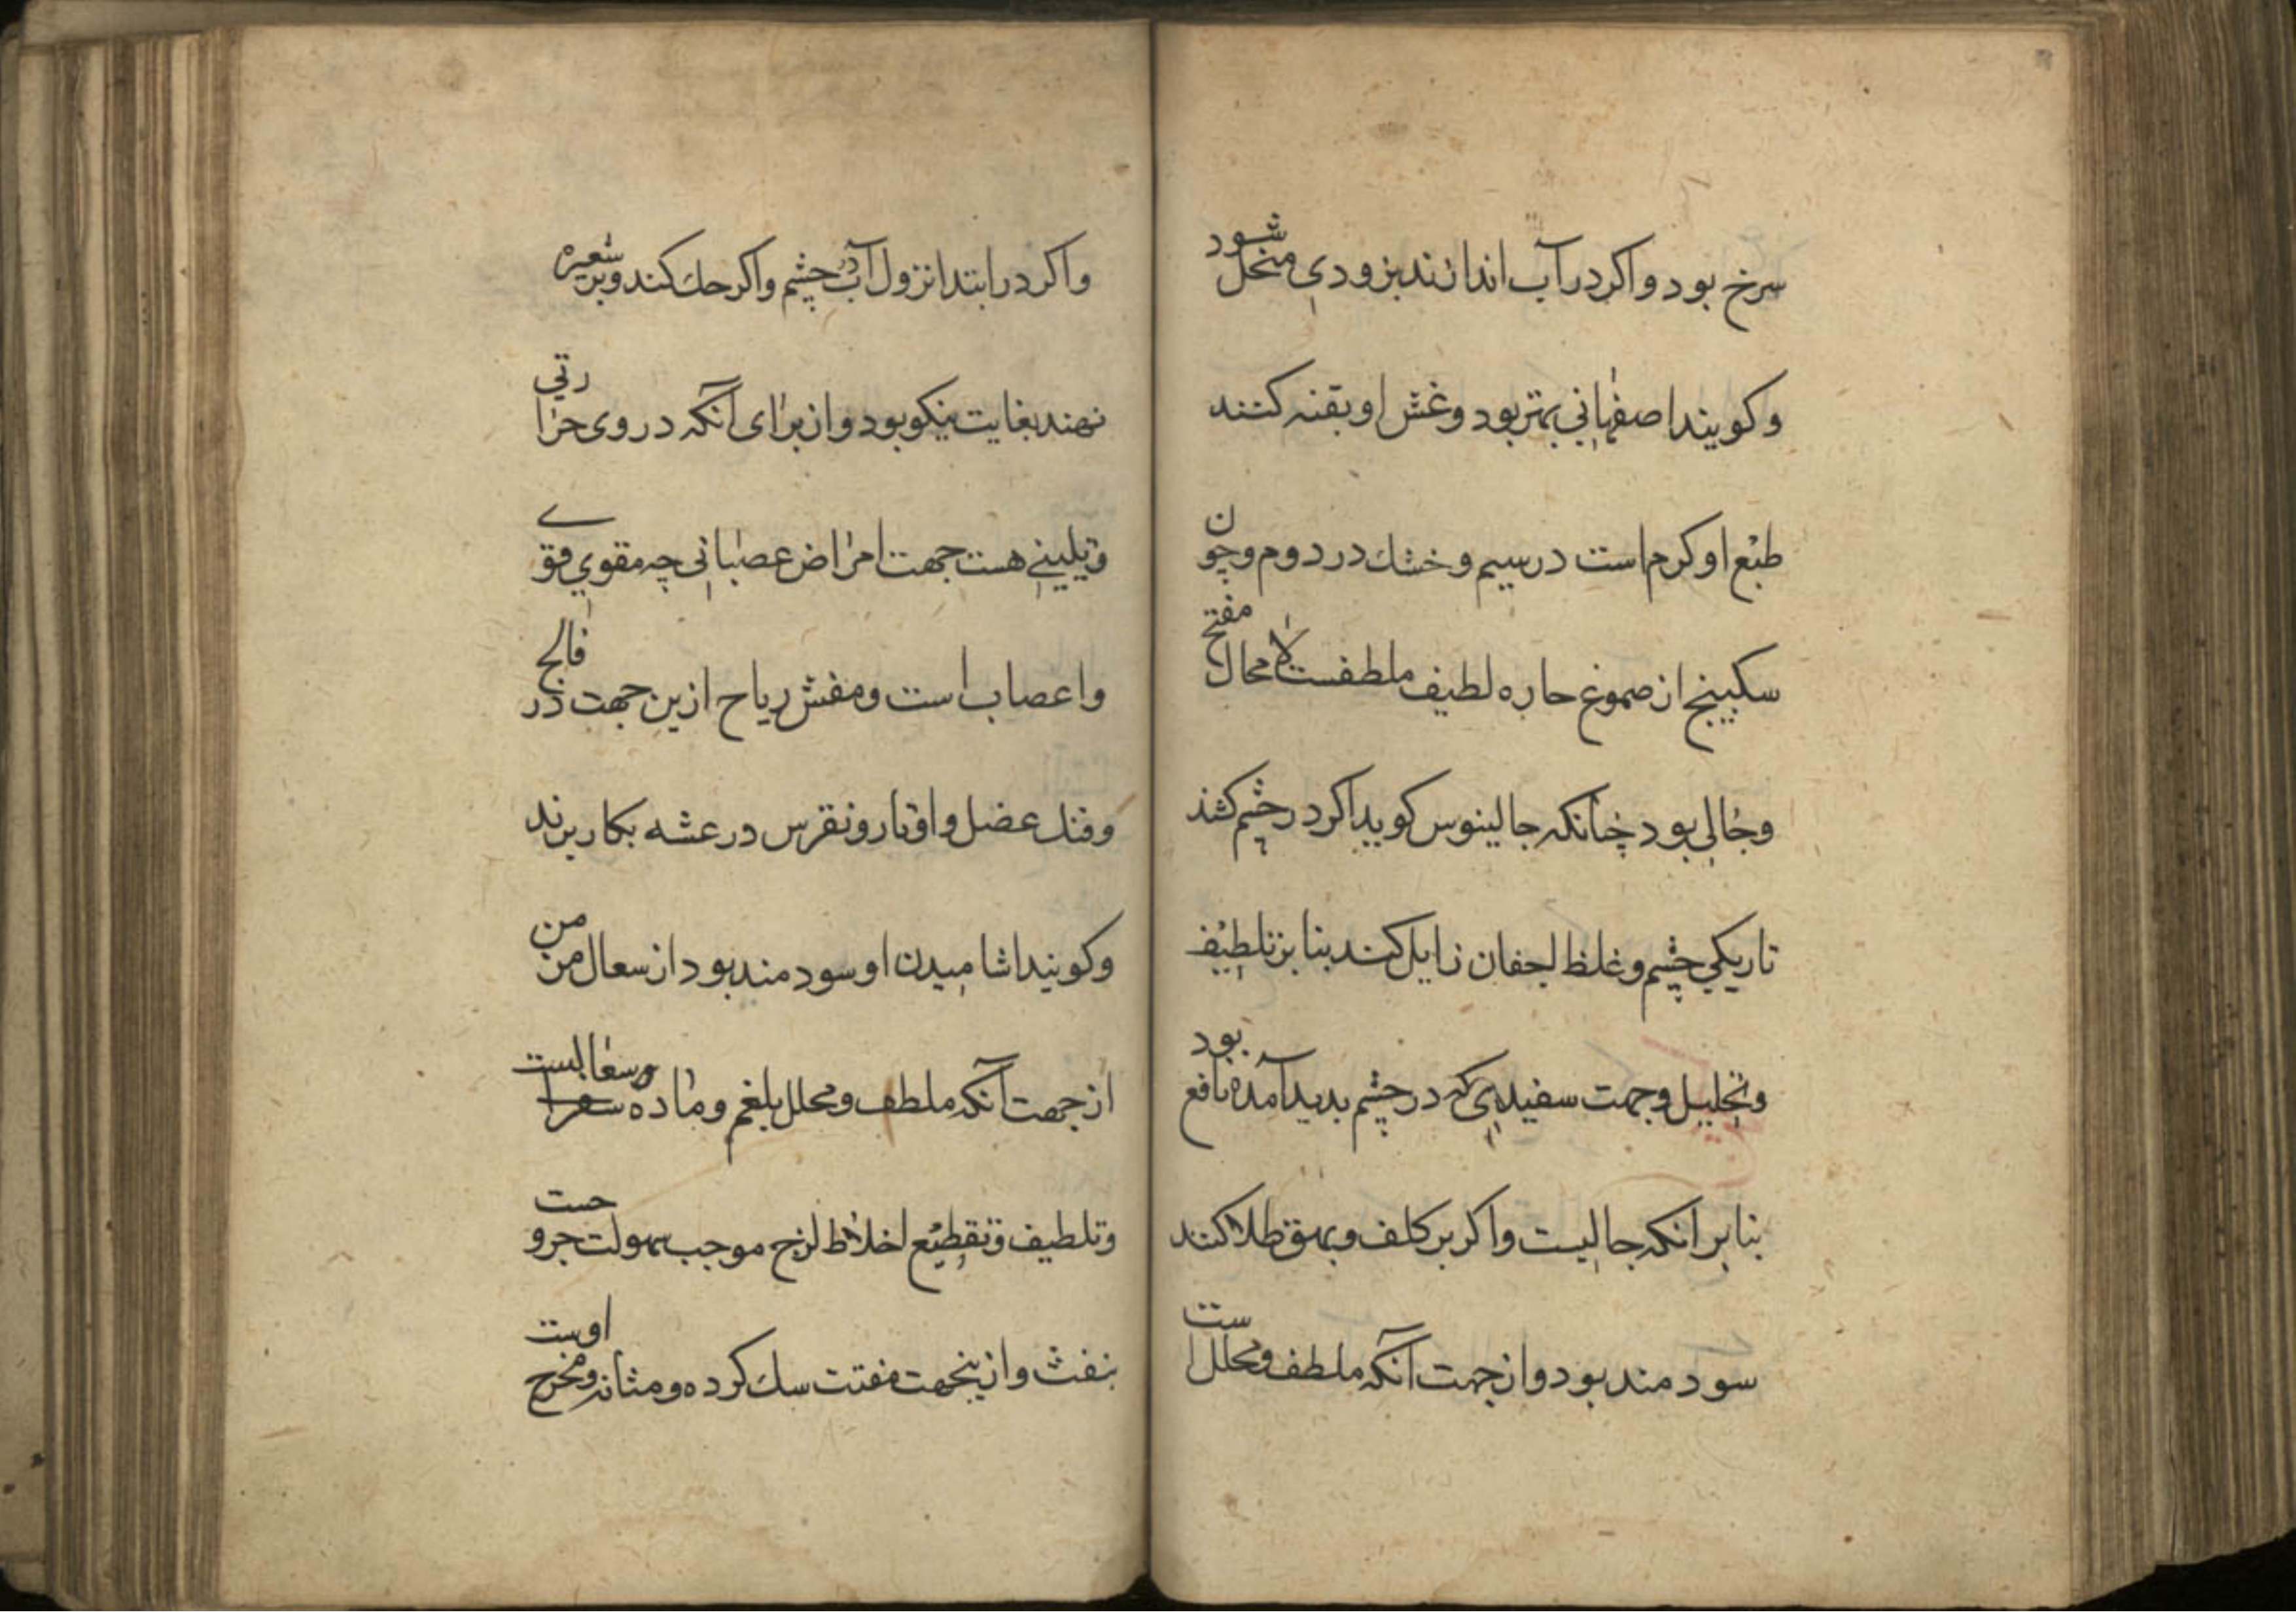 سرخ بود واكر در آب اندازند بزودی منحل شود
وكويند اصفهانی بهتر بود وغش او بقنه كنند
طبع او كرم است در سیم وخشك در دوم وچون
سكبینج از صموغ حاره لطیف ملطفست لا محال مفتح
وجالی بود چنانكه جالینوس كوید اكر در چشم كشند
تاریكی چشم وغلظ اجفان زایل كند بنا بر تلطیف
وتحلیل وجهت سفیدی كه در چشم بدید آمده نافع بود
بنابر انكه جالیست واكر بر كلف وبهق طلا كنند
سود مند بود واز جهت آنكه ملطف ومحللاست
واكر در ابتدا نزول آب در چشم واكر حك كنند وبر شعیره
نهند بغایت نیكو بود واز برای آنكه در وی حرارتی
وتلیینی هست جهت امراض عصبانی چه مقوی قوی
واعصاب است ومفش ریاح ازین جهت در فالج
وفتل عضل واوتار ونقرس در عشه بكار برند
وكویند اشامیدن او سود مند بود از سعال مزمن
از جهت آنكه ملطف ومحلل بلغم وماده سعالست
وتلطیف وتقطیع اخلاط لزج موجب سهولت خروحست
بنفث وازینجهت مفتت سنك كرده ومثانه ومخرج اوست